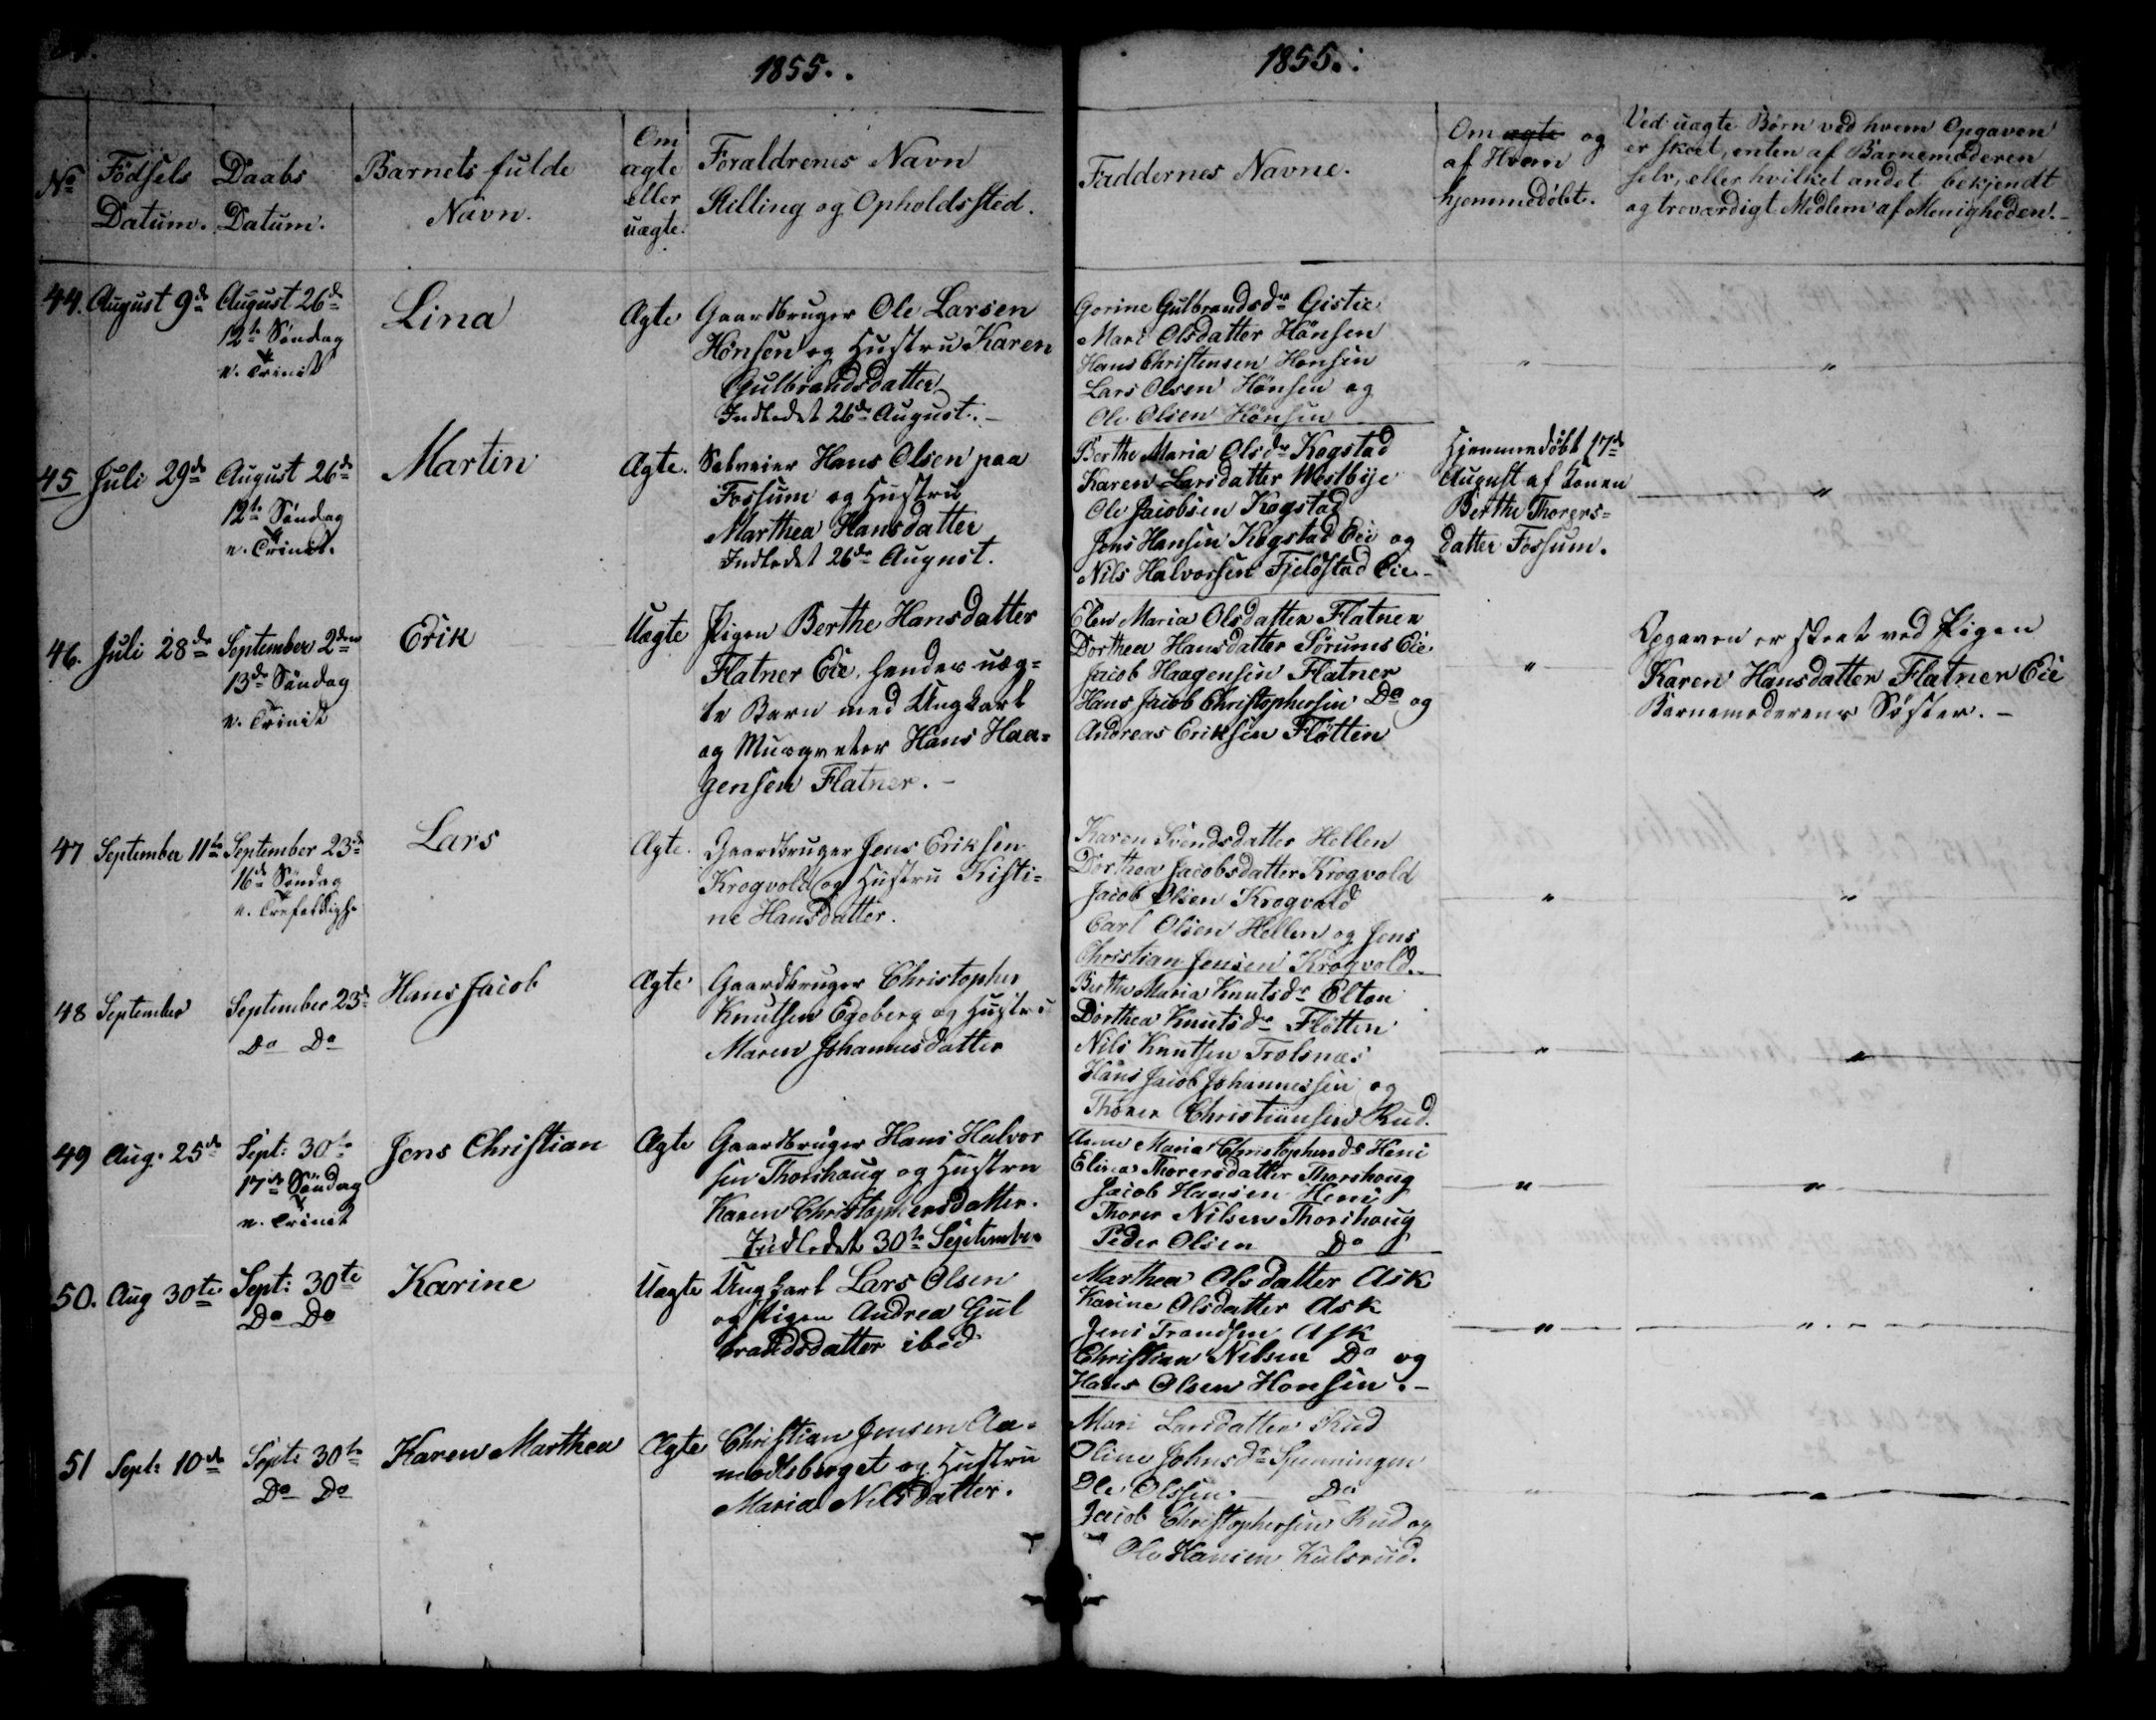 1855.
1855.
No
Födsels Datum.
Daabs Datum.
Barnets fulde Navn.
Om ægte eller uægte.
Foraldrenes Navn
Stilling og Opholdssted.
Faddernes Navne.
Om ægte og
af Hvem
hjemmedöbt.
Ved uægte Børn ved hvem Opgaven
er skeet, enten af Barnemoderen
selv, eller hvilket andet bekjendt
og troværdigt Medlem af Menigheden.
44. August 9de
August 26de
12te Söndag
e. Trinit
Lina
Ægte
Gaardbruger Ole Larsen
Hönsen og Hustru Karen
Gulbrandsdatter
Indledet 26de August.
Gorine Gulbrandsdr Gistie
Mari Olsdatter Hönsen
Hans Christensen Honsen
Lars Olsen Hönsen og
Ole Olsen Hönsen
"
"
45 Juli 29de
August 26de
12te Söndag
e. Trinit.
Martin
Ægte.
Selveier Hans Olsen paa
Fossum og Hustru
Marthea Hansdatter
Indledet 26de August.
Berthe Maria Olsdr Kogstad
Karen Larsdatter Westbye
Ole Jacobsen Kogstad
Jens Hansen Kogstad Eie og
Nils Halvorsen Fjeldstad Eie
Hjemmedöbt 17de
August af Konen
Berthe Thorers=
datter Fossum.
"
46. Juli 28de
September 2den
13de Söndag
e. Trinit
Erik
Uægte
Pigen Berthe Hansdatter
Flatner Eie, hendes uæg=
te Barn med Ungkarl
og Musqueter Hans Haa=
gensen Flatner.
Elen Maria Olsdatter Flatner
Dorthea Hansdatter Sörums Eie
Jacob Haagensen Flatner
Hans Jacob Christophersen Do og
Andreas Eriksen Flötten
"
Opgaven er skeet ved Pigen
Karen Hansdatter Flatner Eie
Barnemoderens Söster.
47 September 11te
September 23de
16de Söndag
e. Trefoldigh.
Lars
Ægte.
Gaardbruger Jens Eriksen
Krogvold og Hustru Kisti=
ne Hansdatter.
Karen Svendsdatter Hellen
Dorthea Jacobsdatter Krogvold
Jacob Olsen Krogvold
Carl Olsen Hellen og Jens
Christian Jensen Krogvold.
"
"
48 September
September 23de
Do Do
Hans Jacob
Ægte
Gaardbruger Christopher
Knutsen Egeberg og Hustru
Maren Johannesdatter
Berthe Maria Knutsdr Elton
Dorthea Knutsdr Flötten
Nils Knutsen Trolsnæs
Hans Jacob Johannessen og
Thorer Christiansen Rud.
"
"
49 Aug. 25de
Sept: 30te
17de Söndag
e. Trinit
Jens Christian
Ægte
Gaardbruger Hans Halvor
sen Thorshaug og Hustru
Karen Christophersdatter.
Indledet 30te September
Anne Maria Christophersdr Heni
Elina Thorersdatter Thorshoug
Jacob Hansen Heni
Thorer Nilsen Thorshoug
Peder Olsen Do
"
"
50. Aug 30te
Sept: 30te
Do Do
Karine
Uægte
Ungkarl Lars Olsen
og Pigen Andrea Gul
brandsdatter ibid
Marthea Olsdatter Ask
Karine Olsdatter Ask
Jens Trandsen Ask
Christian Nilsen Do og
Hans Olsen Honsen.
"
"
51 Sept: 10de
Sept: 30te
Do Do
Karen Marthea
Ægte
Christian Jensen Aa=
modtsberget og Hustru
Maria Nilsdatter.
Mari Larsdatter Rud
Oline Johnsdr Spenningen
Ole Olssen Do
Jacob Christophersen Rud og
Ole Hansen Kulsrud.
"
"